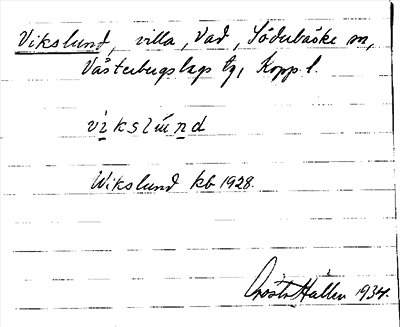 Vikslund, villa, Vad, Söderbärke sn,
Västerbergslags tg, Kopp. l.
vikslund
Wikslund kb 1928.
Gösta Hallen 1934.